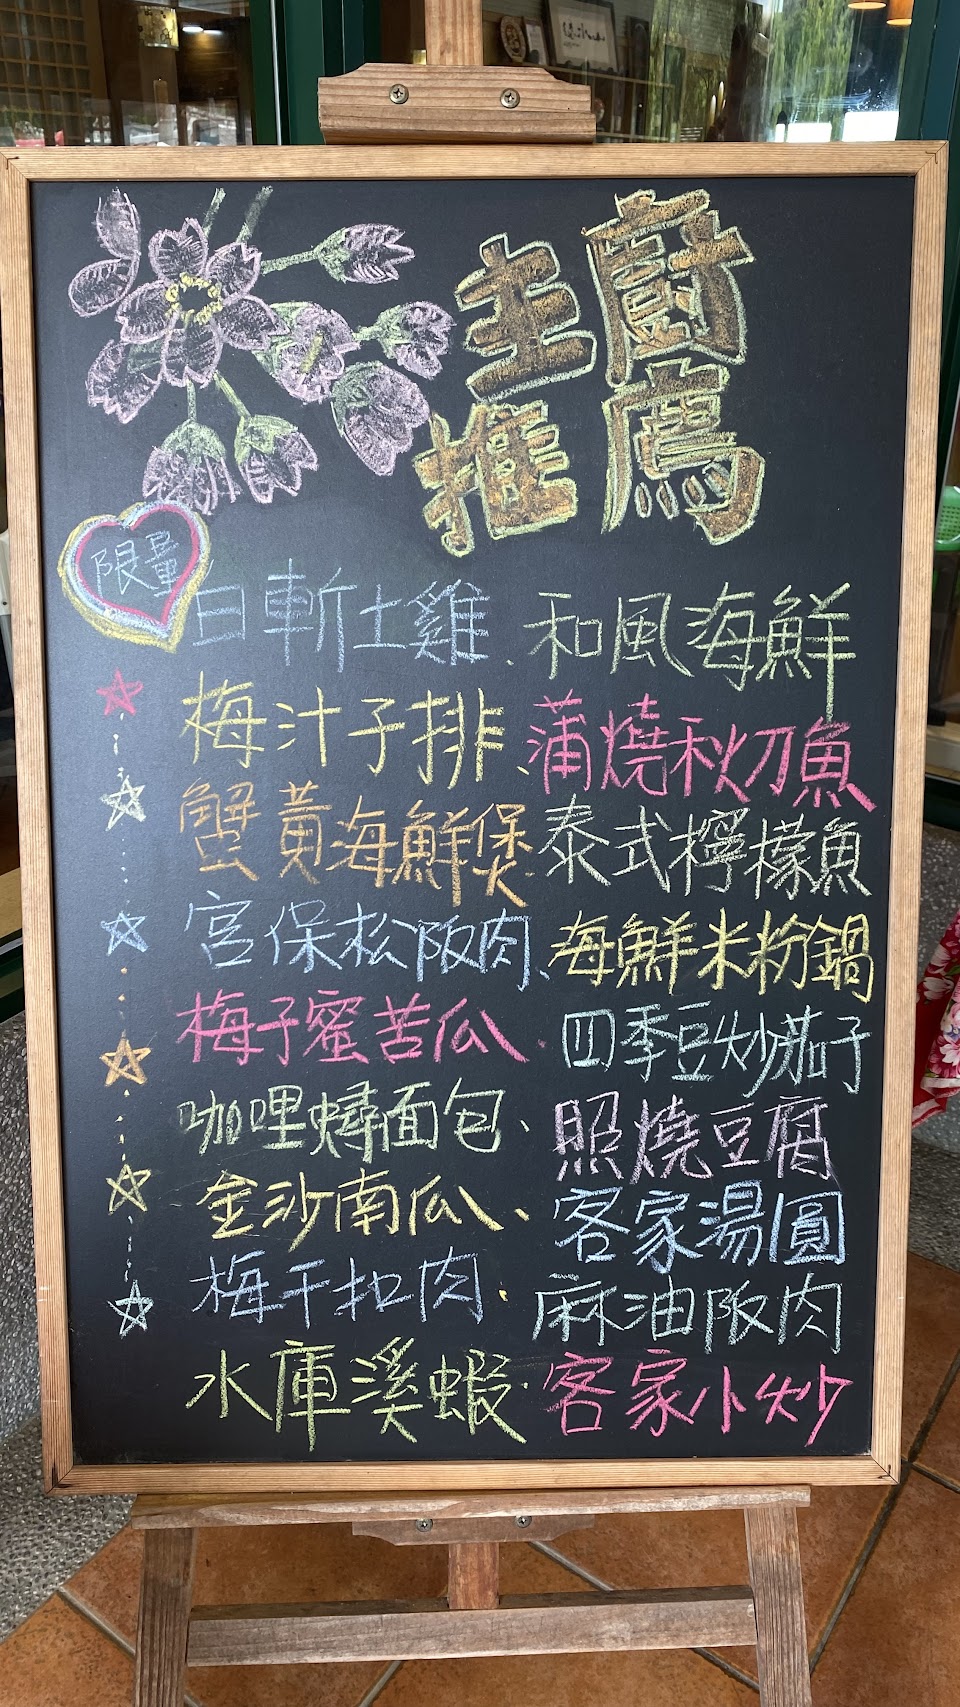 主廚
推薦
限量
白斬土雞、和風海鮮
梅汁子排、蒲燒秋刀魚
蟹黃海鮮煲、泰式檸檬魚
宮保松阪肉、海鮮米粉鍋
梅子蜜苦瓜、四季豆炒茄子
咖哩蟳面包、照燒豆腐
金沙南瓜、客家湯圓
梅干扣肉、麻油阪肉
水庫溪蝦、客家小炒